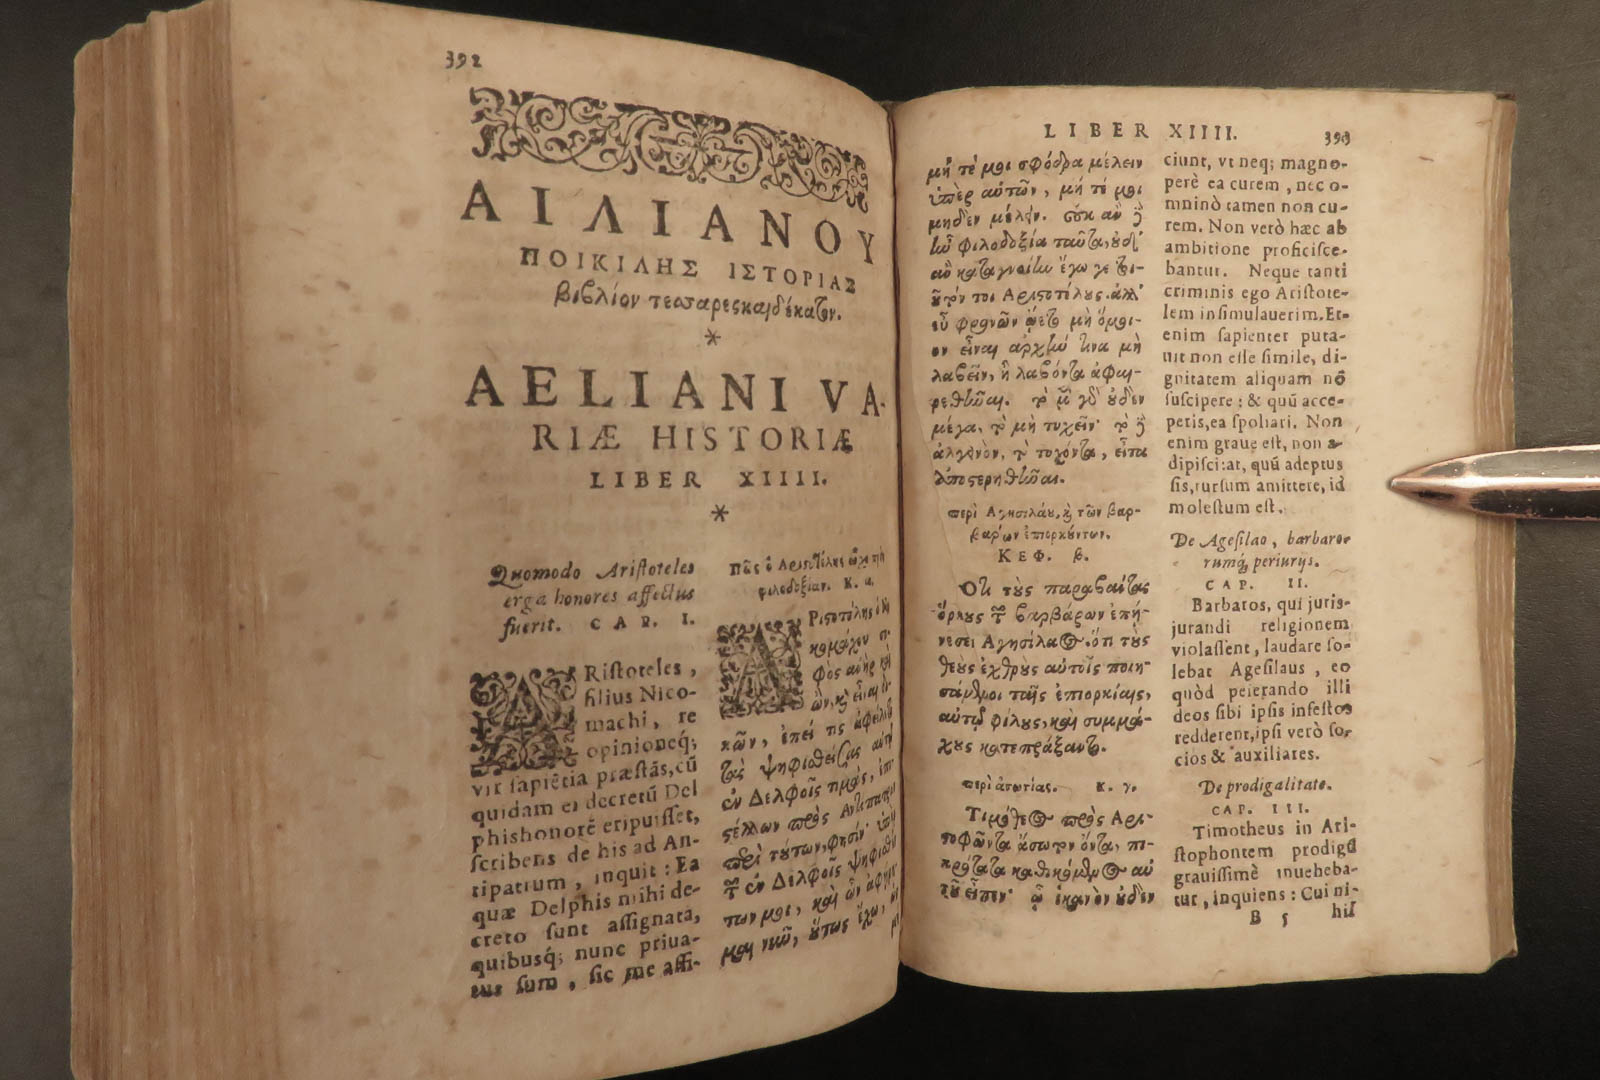 392
ΑΙΛΙΑΝΟΥ
ΠΟΙΚΙΛΗΣ ΙΣΤΟΡΙΑΣ
βιβλίον τεσσαρεσκαιδέκατον.
*
AELIANI VA-
RIÆ HISTORIÆ
LIBER XIIII.
*
Quomodo Ariſtoteles
erga honores affectus
fuerit. CAP. I.
ARiſtoteles,
filius Nico-
machi, re
opinioneq́;
vir ſapiẽtia præſtãs, cũ
quidam ei decretũ Del
phis honorẽ eripuiſſet,
ſcribens de his ad An-
tipatrum, inquit: Ea
quæ Delphis mihi de-
creto ſunt aſſignata,
quibusq́; nunc priua-
tus ſum, ſic me affi-
Πῶς ὁ Ἀριστοτέλης
φιλοδοξίαν. Κ. α.
ΑΡιστοτέλης ὁ Νι
κομάχου σο-
φὸς ἀνὴρ καὶ
ὢν, καὶ εἶναι δο-
κῶν, ἐπεί τις ἀφείλετο
τὰς ψηφισθείσας αὐτῷ
ἐν Δελφοῖς τιμὰς, ἐπι-
στέλλων πρὸς Ἀντίπατρον
περὶ τούτων, φησίν· ὑπὲρ
τῶν ἐν Δελφοῖς ψηφισθέν
των μοι, καὶ ὧν ἀφῄρη-
μαι νῦν, οὕτως ἔχω, ὡς
LIBER XIIII. 393
μή τέ μοι σφόδρα μέλειν
ὑπὲρ αὐτῶν, μή τέ μοι
μηδὲν μέλειν. οὐκ ἂν δὲ
εἴη φιλοδοξία ταῦτα, οὐδ'
ἂν καταγνοίην ἔγωγε τοι-
οῦτόν τοι Ἀριστοτέλους. ἀλλ'
εὖ φρονῶν ᾤετο μὴ ὅμοι-
ον εἶναι ἀρχήν τινα μὴ
λαβεῖν, ἢ λαβόντα ἀφαι-
ρεθῆναι. τὸ μὲν γὰρ οὐδὲν
μέγα, τὸ μὴ τυχεῖν· τὸ δὲ
ἀλγεινὸν, τὸ τυχόντα, εἶτα
ἀποστερηθῆναι.
περὶ Ἀγησιλάου, καὶ τῶν βαρ-
βάρων ἐπιορκούντων.
ΚΕΦ. β.
Οτι τοὺς παραβάντας
ὅρκους τῶν βαρβάρων ἐπῄ-
νεσεν Ἀγησίλαος. ὅτι τοὺς
θεοὺς ἐχθροὺς αὑτοῖς ποιη-
σάμενοι ταῖς ἐπιορκίαις,
αὐτῷ φίλους, καὶ συμμά-
χους κατεπράξαντο.
περὶ ἀσωτίας. Κ. γ.
Τιμόθεος πρὸς Ἀρι-
στοφῶντα ἄσωτον ὄντα, πι-
κρότατα καθικόμενος αὐ
τοῦ εἶπεν· ᾧ ἱκανὸν οὐδὲν
ciunt, vt neq; magno-
perè ea curem, nec o-
mninò tamen non cu-
rem. Non verò hæc ab
ambitione proficiſce-
bantur. Neque tanti
criminis ego Ariſtote-
lem inſimulauerim. Et-
enim ſapienter puta-
uit non eſſe ſimile, di-
gnitatem aliquam nõ
ſuſcipere: & quũ acce-
peris, ea ſpoliari. Non
enim graue eſt, non a-
dipiſci: at, quũ adeptus
ſis, rurſum amittere, id
moleſtum eſt.
De Ageſilao, barbaro-
rumq́; periurijs.
CAP. II.
Barbaros, qui juris-
jurandi religionem
violaſſent, laudare ſo-
lebat Ageſilaus, eo
quòd peierando illi
deos ſibi ipſis infeſtos
redderent, ipſi verò ſo-
cios & auxiliares.
De prodigalitate.
CAP. III.
Timotheus in Ari-
ſtophontem prodigũ
grauiſſimè inueheba-
tur, inquiens: Cui ni-
B 5 hil